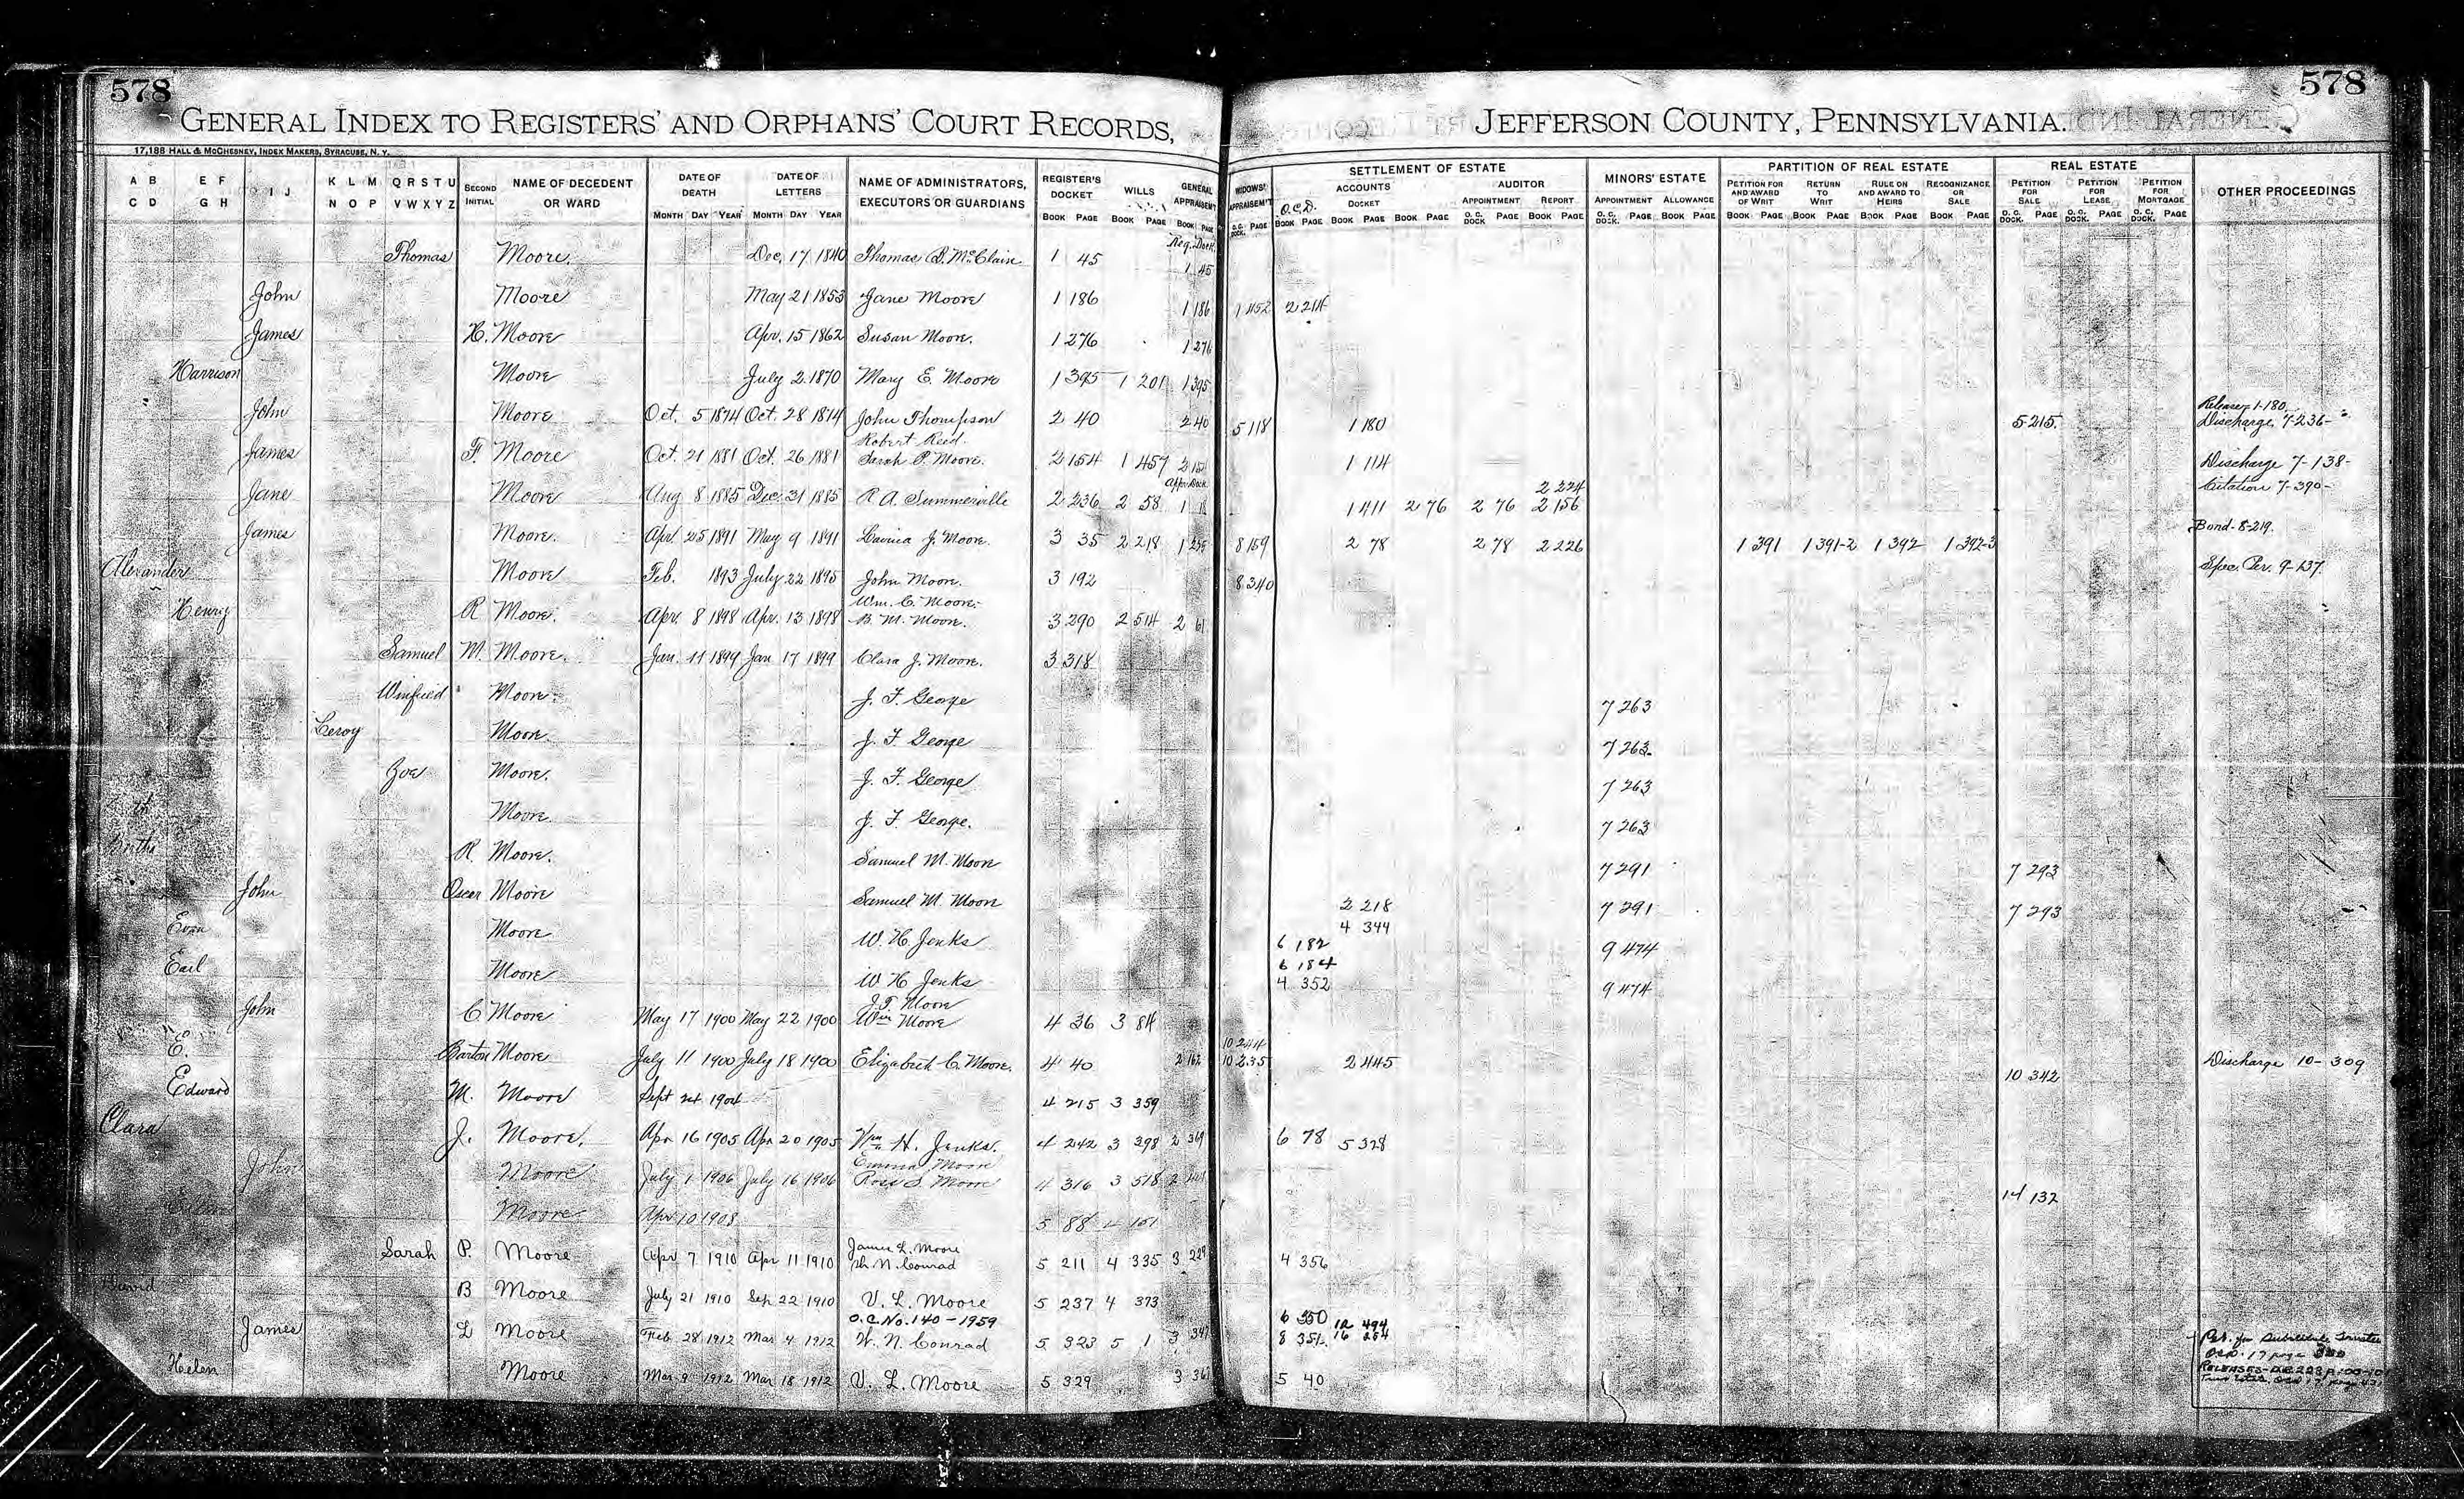 578
578
GENERAL INDEX TO REGISTERS' AND ORPHANS' COURT RECORDS,
JEFFERSON COUNTY, PENNSYLVANIA.
17,188 HALL & McCHESNEY, INDEX MAKERS, SYRACUSE, N. Y.
A B C D E F G H I J K L M N O P Q R S T U V W X Y Z SECOND INITIAL NAME OF DECEDENT OR WARD DATE OF DEATH MONTH DAY YEAR DATE OF LETTERS MONTH DAY YEAR NAME OF ADMINISTRATORS, EXECUTORS OR GUARDIANS REGISTER'S DOCKET BOOK PAGE WILLS BOOK PAGE GENERAL APPRAISEM'T BOOK PAGE
WIDOWS' APPRAISEM'T O.C. DOCK. PAGE SETTLEMENT OF ESTATE O.C.D. BOOK PAGE ACCOUNTS DOCKET BOOK PAGE BOOK PAGE AUDITOR APPOINTMENT O.C. DOCK. PAGE REPORT BOOK PAGE MINORS' ESTATE APPOINTMENT O.C. DOCK. PAGE ALLOWANCE BOOK PAGE PARTITION OF REAL ESTATE PETITION FOR AND AWARD OF WRIT BOOK PAGE RETURN TO WRIT BOOK PAGE RULE ON AND AWARD TO HEIRS BOOK PAGE RECOGNIZANCE OR SALE BOOK PAGE REAL ESTATE PETITION FOR SALE O.C. DOCK. PAGE PETITION FOR LEASE O.C. DOCK. PAGE PETITION FOR MORTGAGE O.C. DOCK. PAGE OTHER PROCEEDINGS
Reg. Dock.
Thomas Moore. Dec. 17 1840 Thomas B. McClain 1 45 1 45
John Moore May 21 1853 Jane Moore 1 186 1 186 1 452 2 214
James H. Moore Apr. 15 1862 Susan Moore. 1 276 1 276
Harrison Moore July 2 1870 Mary E. Moore 1 395 1 201 1 395
John Moore Oct. 5 1874 Oct. 28 1874 John Thompson 2 40 2 40 5 118 1 180 5 215. Release 1-180. Discharge 7-236-
Robert Reed.
James F. Moore Oct. 21 1881 Oct. 26 1881 Sarah P. Moore. 2 154 1 457 2 154 1 114 Discharge 7-138-
App. Dock. 2 224 Citation 7-390-
Jane Moore Aug 8 1885 Dec. 31 1885 R. A. Summerville 2 236 2 58 1 18 1 411 2 76 2 76 2 156
James Moore. Apr 25 1891 May 9 1891 Lavina J. Moore. 3 35 2 218 1 235 8 159 2 78 2 78 2 226 1 391 1 391-2 1 392 1 392-3 Bond-8-219.
Alexander Moore Feb. 1893 July 22 1895 John Moore. 3 192 8 340 Spec. Per. 9-137.
Wm. C. Moore.
Henry R Moore. Apr. 8 1898 Apr. 13 1898 B. M. Moore. 3 290 2 514 2 61
Samuel M. Moore. Jan. 11 1899 Jan 17 1899 Clara J. Moore. 3 318
Winfield Moore. J. F. George 7 263
Leroy Moore J. F. George 7 263.
Zoe Moore. J. F. George 7 263
Moore J. F. George. 7 263
R. Moore. Samuel M. Moore 7 291 7 293
John Oscar Moore Samuel M. Moore 2 218 7 291 7 293
4 344
Moore W. H. Jenks 6 182 9 474
6 184
Earl Moore W H Jenks 4 352 9 474
J. T. Moore
John C. Moore May 17 1900 May 22 1900 Wm Moore 4 36 3 84
10 244
E. Barton Moore July 11 1900 July 18 1900 Elizabeth C. Moore. 4 40 2 162 10 235 2 445 10 342 Discharge 10-309
Edward M. Moore Sept 24 1904 4 215 3 359
Clara J. Moore. Apr 16 1905 Apr 20 1905 Wm H. Jenks. 4 242 3 398 2 369 6 78 5 328
Emma Moore
John Moore July 1 1906 July 16 1906 Ross S. Moore 4 316 3 518 14 132
Moore Apr 10 1908 5 88 4 101
James L. Moore
Sarah P. Moore Apr 7 1910 Apr 11 1910 W. N. Conrad 5 211 4 335 3 229 4 356
David B Moore July 21 1910 Sep 22 1910 V. L. Moore 5 237 4 373
O.C. No. 140-1959 6 350 12 494
James L Moore Feb 28 1912 Mar 4 1912 W. N. Conrad 5 323 5 1 3 341 8 351 16 264 Pet. for Substitute Trustee
Helen Moore Mar 9 1912 Mar 18 1912 V. L. Moore 5 329 3 361 5 40